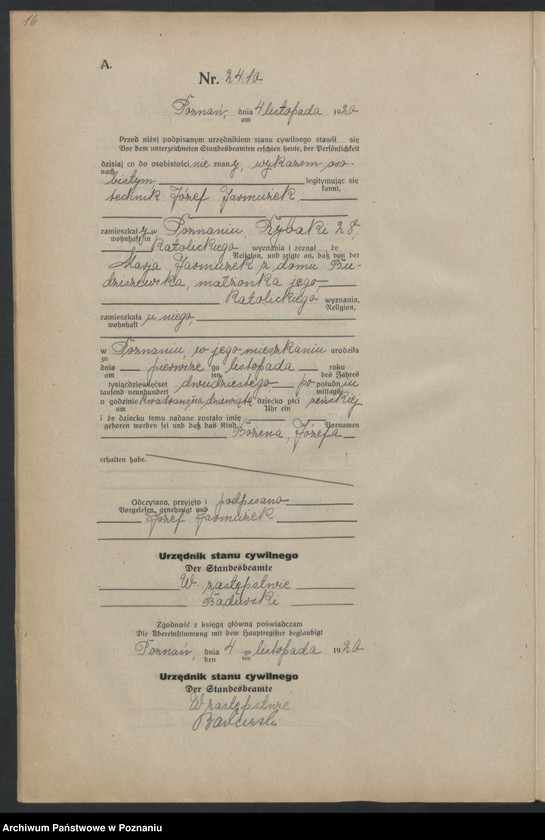 16
A.
Nr. 2410
Poznań, dnia 4 listopada 1920
am
Przed niżej podpisanym urzędnikiem stanu cywilnego stawił się
Vor dem unterzeichneten Standesbeamten erschien heute, der Persönlichkeit
dzisiaj co do osobistości nie znany, wykazem oso-
nach
bistym legitymując się
kannt,
technik Józef Jasmużek
zamieszkały w Poznaniu, Rybaki 28,
wohnhaft in
Katolickiego wyznania i zeznał, że
Religion, und zeigte an, daß von der
Marja Jasmużek z domu Bu-
dziszewska, małżonka jego,
Katolickiego wyznania,
Religion,
zamieszkała u niego,
wohnhaft
w Poznaniu, w jego mieszkaniu urodziła
zu
dnia pierwszego listopada roku
am ten des Jahres
tysiącdziewięćset dwudziestego po południu
tausend neunhundert mittags
o godzinie kwadrans na dziewiątą dziecko płci żeńskiej
um Uhr ein
i że dziecku temu nadane zostało imię
geboren worden sei und daß das Kind Vornamen
Bożena, Józefa
erhalten habe.
Odczytano, przyjęto i podpisano
Vorgelesen, genehmigt und
Józef Jasmużek
Urzędnik stanu cywilnego
Der Standesbeamte
W zastępstwie
Urzędnik stanu cywilnego
Zgodność z księgą główną poświadczam
Die Übereinstimmung mit dem Hauptregister beglaubigt
Poznań, dnia 4 go listopada 1920
den ten
Urzędnik stanu cywilnego
Der Standesbeamte
W zastępstwie
Archiwum Państwowe w Poznaniu